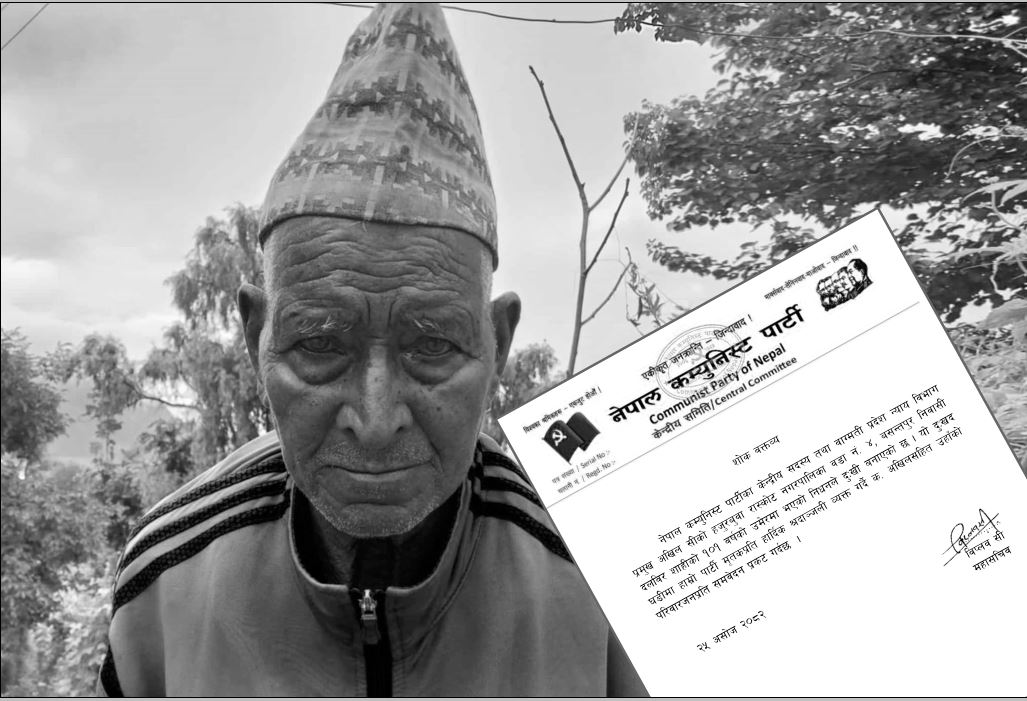 विश्वका श्रमिकहरू – एकजुट होऔं !
एकीकृत जनक्रान्ति – जिन्दावाद !
मार्क्सवाद-लेनिनवाद-माओवाद – जिन्दावाद !!
नेपाल कम्युनिस्ट पार्टी
Communist Party of Nepal
केन्द्रीय समिति/Central Committee
पत्र संख्या / Serial No :-
चलानी नं. / Regd. No :-
शोक वक्तव्य
नेपाल कम्युनिस्ट पार्टीका केन्द्रीय सदस्य तथा वाग्मती प्रदेश न्याय विभाग
प्रमुख अखिल सीको हजुरबुवा रास्कोट नगरपालिका वडा नं. ४, बसन्तपुर निवासी
दलविर शाहीको १०१ वर्षको उमेरमा भएको निधनले दुःखी बनाएको छ । यो दुःखद
घडीमा हाम्रो पार्टी मृतकप्रति हार्दिक श्रद्धाञ्जली व्यक्त गर्दै क. अखिलसहित उहाँको
परिवारजनप्रति समवेदना प्रकट गर्दछ ।
विप्लव सी
महासचिव
२५ असोज २०८२